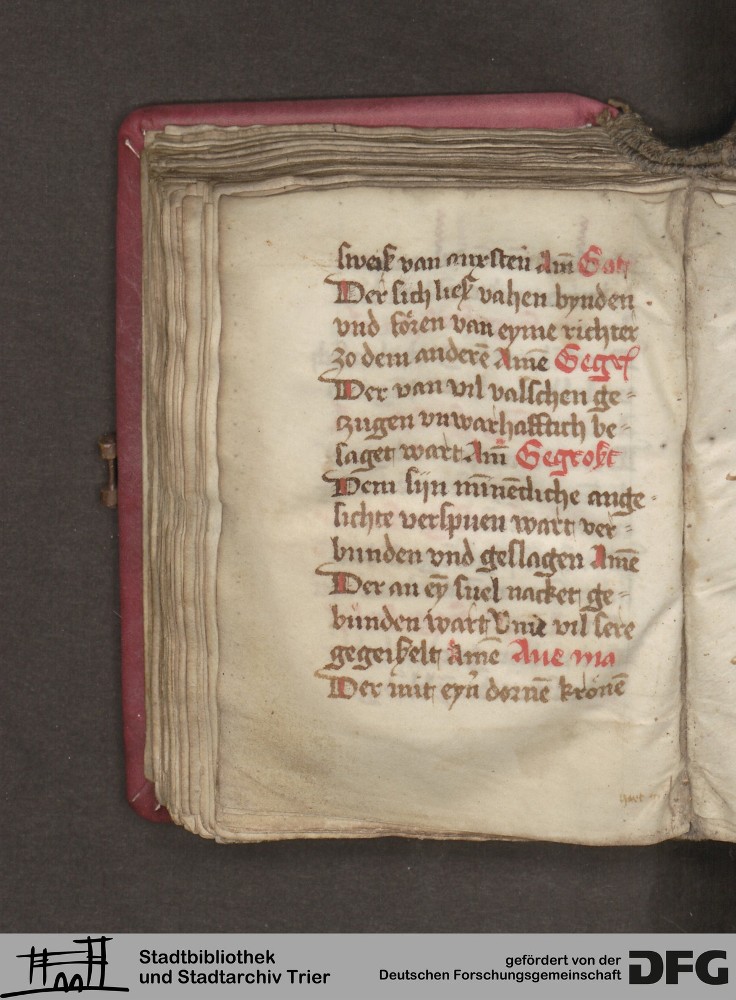 sweiß van anxsten Am̄
Der sich ließ vahen bynden
vnd foren van eyme richter
zo dem anderē Amē Gegeſ
Der van vil valschen ge-
zugen vnwarhafftich be-
saget wart Am̄ Gegrobt
Dem sijn mīnētliche ange-
sichte verspuen wart ver-
bunden vnd geslagen Amē
Der an eȳ suel nacket ge-
bunden wart Vnd vil sere
gegeisselt Amē Aue ma
Der mit eyn̄ dornē kronē
Stadtbibliothek
und Stadtarchiv Trier
gefördert von der
Deutschen Forschungsgemeinschaft
DFG